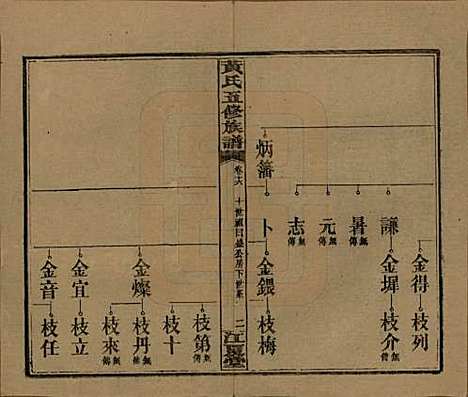 金得 枝列
謙 金墀 枝介 無傳
暑 無傳
元 無傳
志 無傳
炳藩 卜 金鍡 枝梅
黃氏五修族譜
卷六 十世祖日盛公房下世系 二 江夏堂
枝第 無傳
枝十
金燦 枝丹 無傳
枝來 無傳
金宜 枝立
金音 枝任